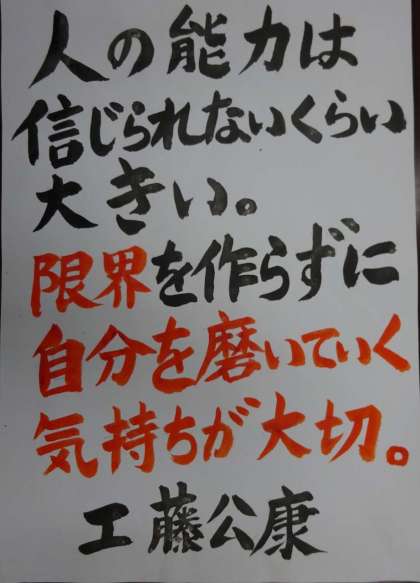 人の能力は
信じられないくらい
大きい。
限界を作らずに
自分を磨いていく
気持ちが大切。
工藤公康